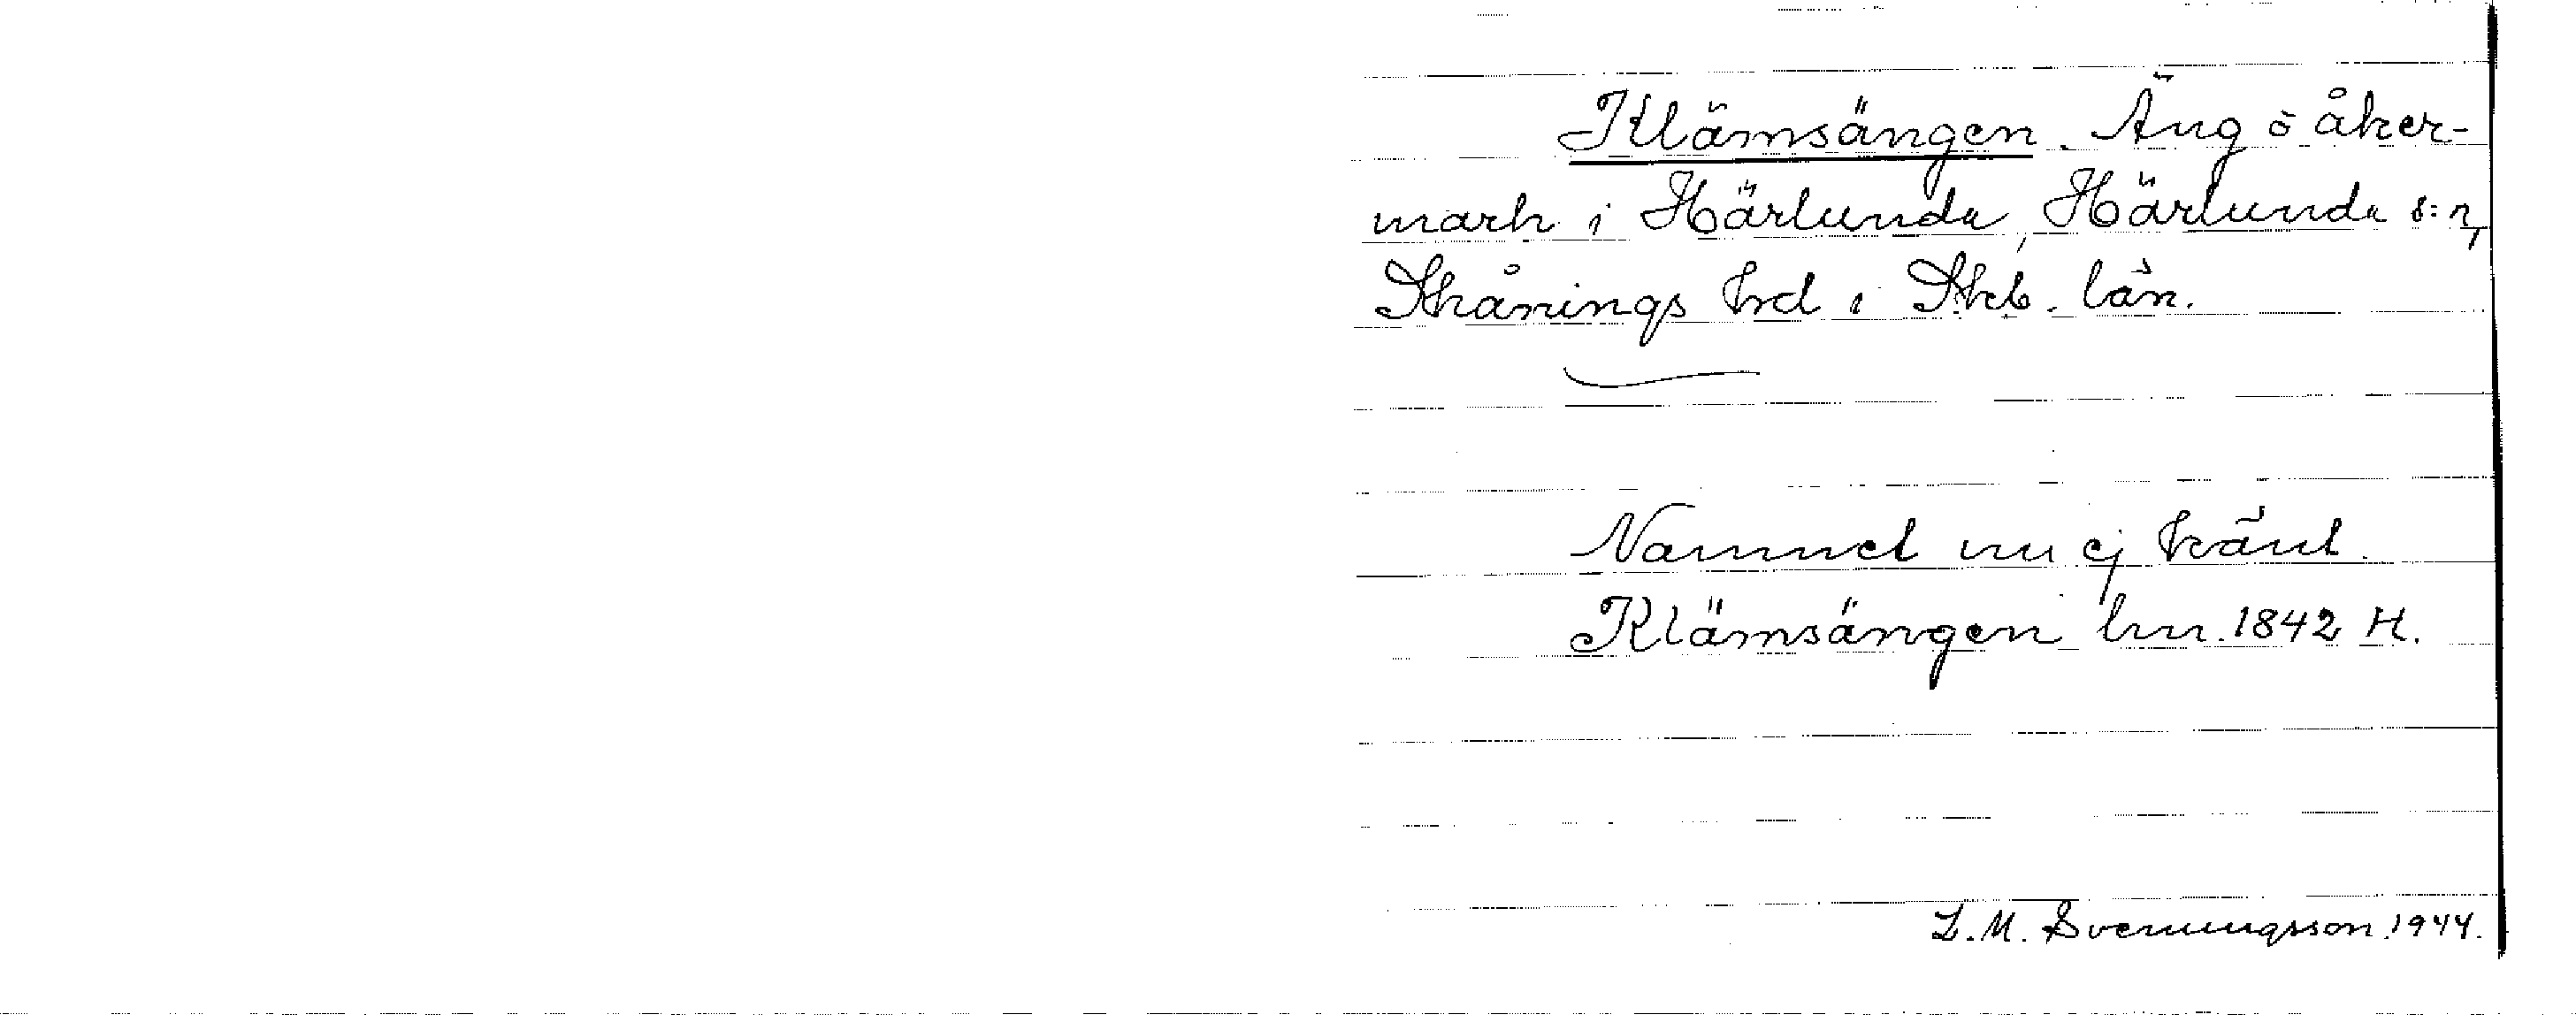 Klämsängen. Äng o åker-
mark i Härlunda, Härlunda s:n,
Skånings hrd i Skb. län.
Namnet nu ej känt.
Klämsängen lm. 1842 H.
L. M. Svenungsson 1944.